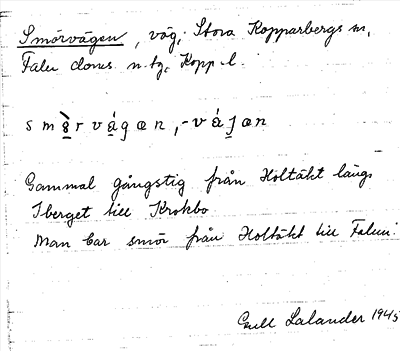 Smörvägen, väg, Stora Kopparbergs sn,
Falu doms. n. tg, Kopp. l.
smörvágæn, -vájæn
Gammal gångstig från Holtäkt längs
Iberget till Krokbo
Man bar smör från Holtäkt till Falun.
Gull Lalander 1945